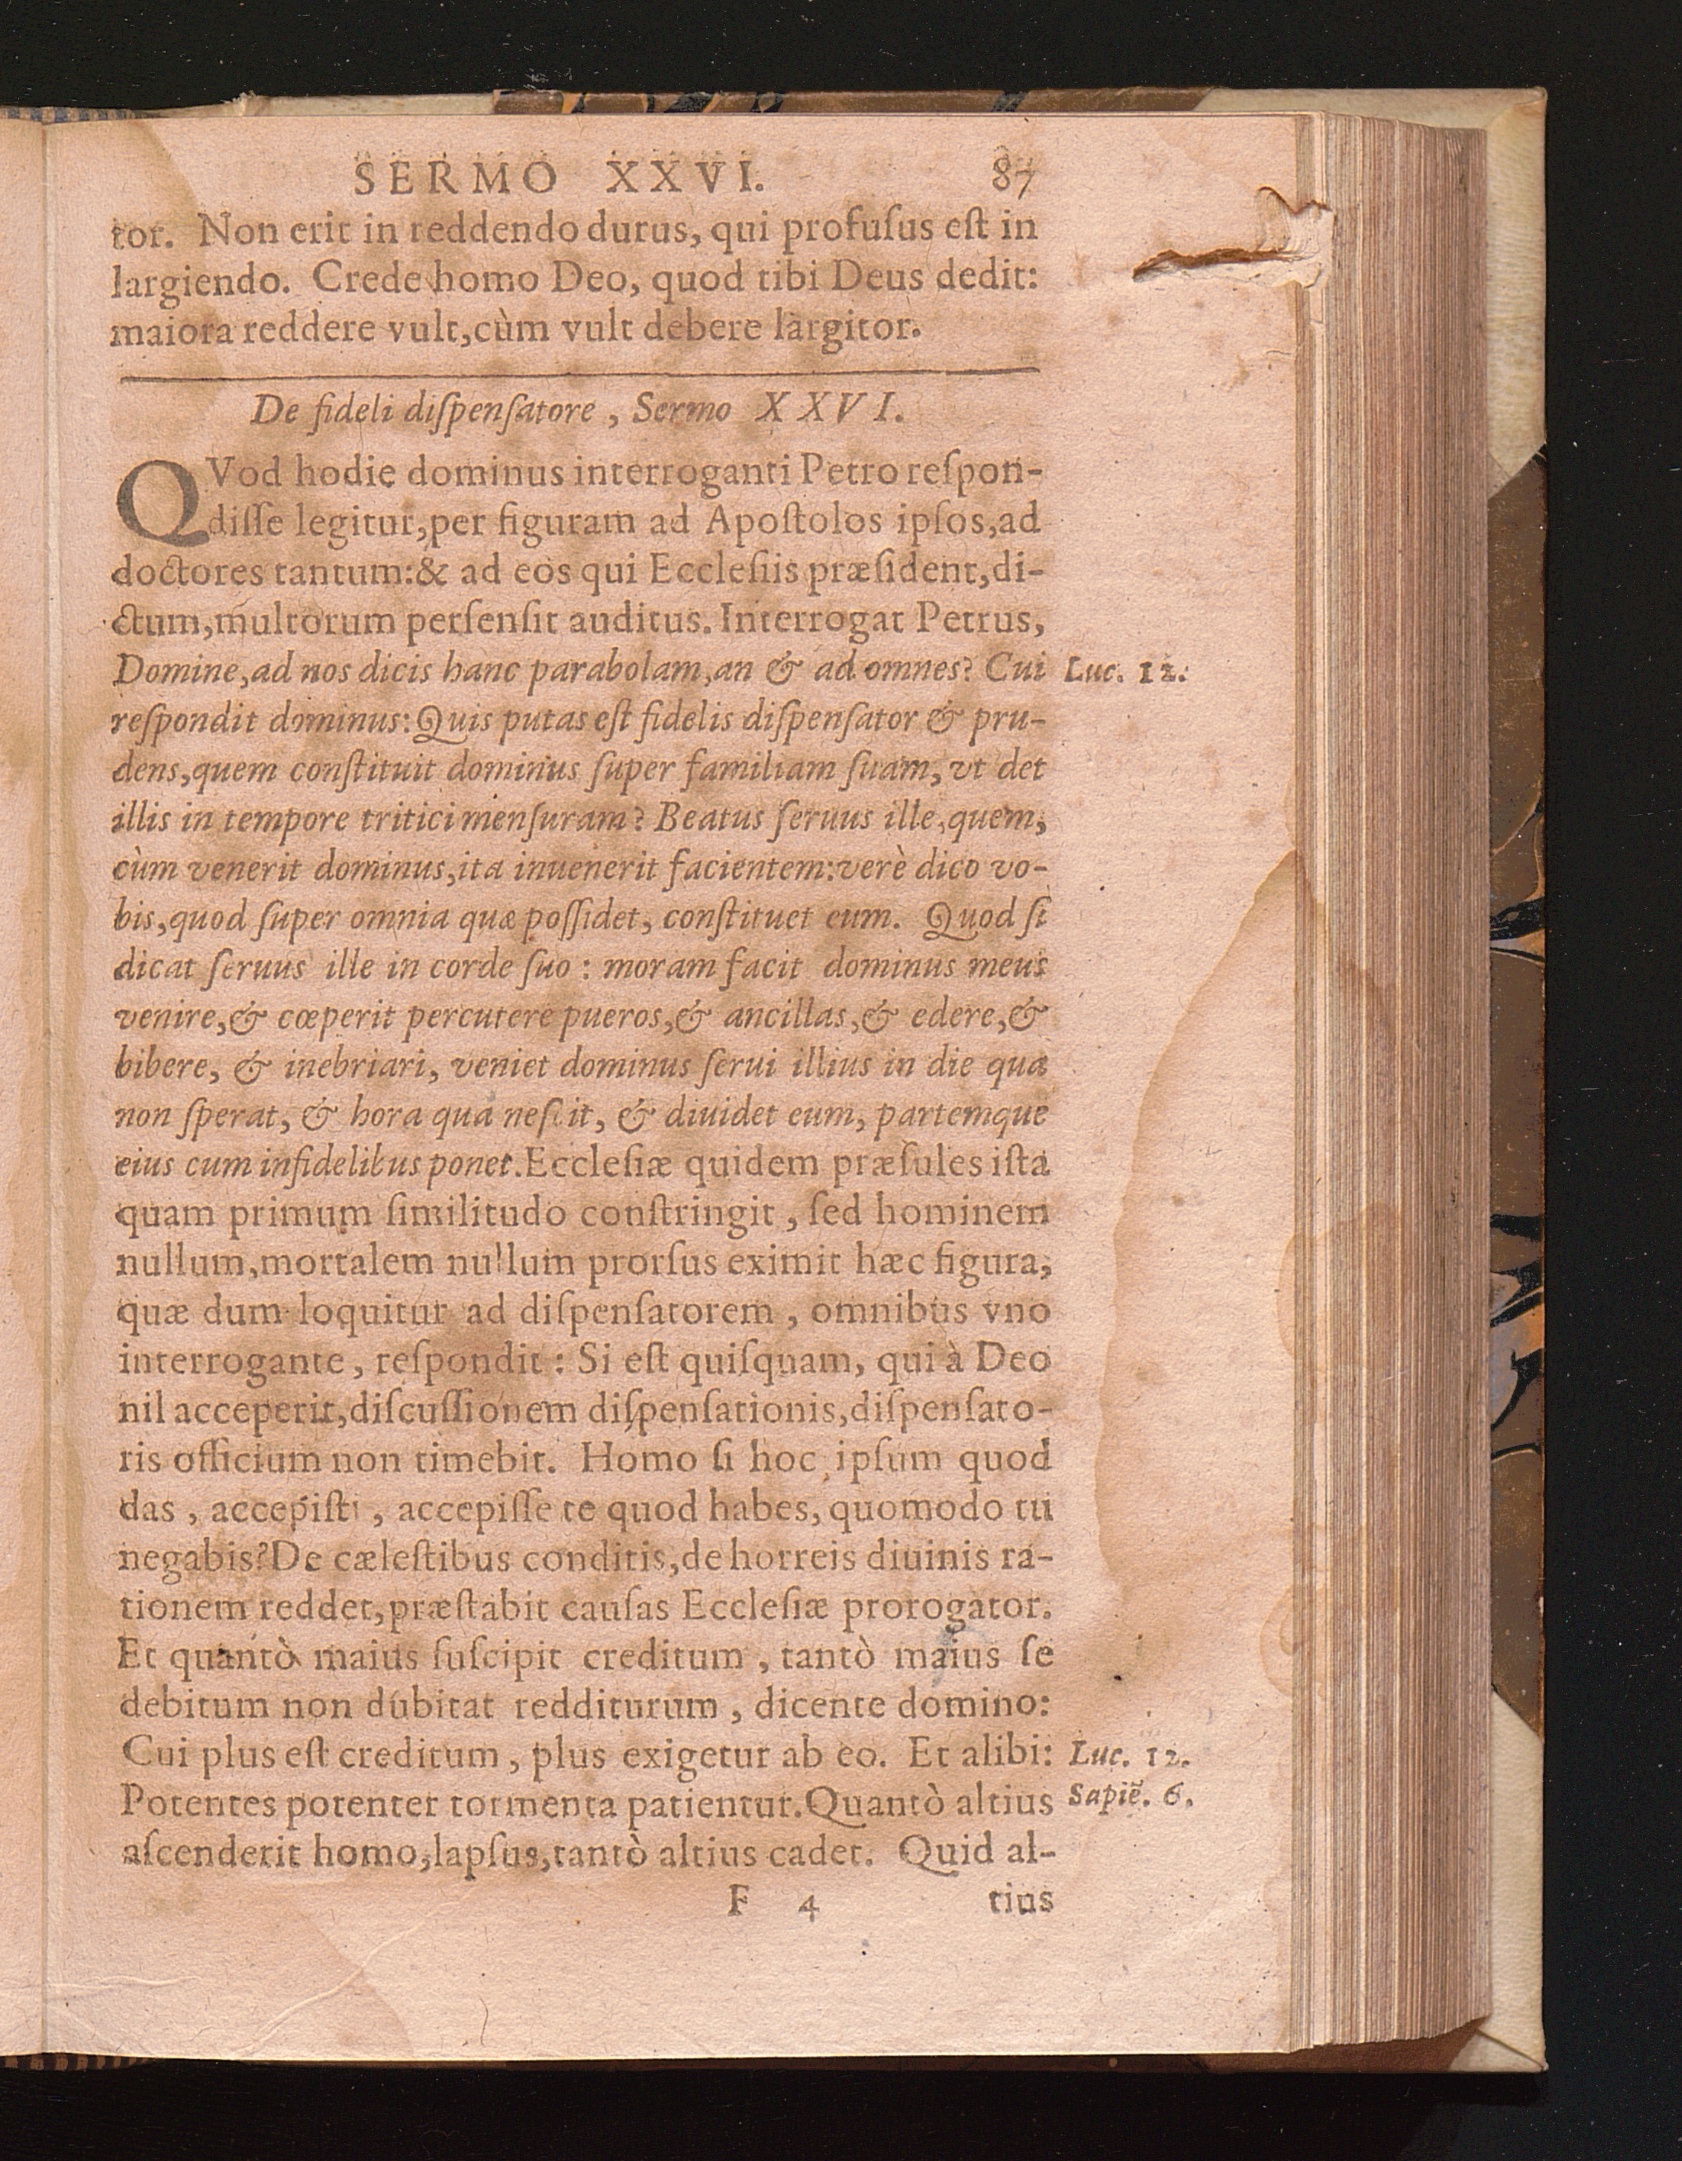 SERMO XXVI. 87
tor. Non erit in reddendo durus, qui profuſus eſt in
largiendo. Crede homo Deo, quod tibi Deus dedit:
maiora reddere vult,cùm vult debere largitor.
De fideli diſpenſatore , Sermo XXVI.
QVod hodie dominus interroganti Petro reſpon-
diſſe legitur,per figuram ad Apoſtolos ipſos,ad
doctores tantum:& ad eos qui Eccleſiis præſident,di-
ctum,multorum perſenſit auditus. Interrogat Petrus,
Domine,ad nos dicis hanc parabolam,an & ad omnes? Cui Luc. 12.
reſpondit dominus:Quis putas eſt fidelis diſpenſator & pru-
dens,quem conſtituit dominus ſuper familiam ſuam, vt det
illis in tempore tritici menſuram? Beatus ſeruus ille,quem,
cùm venerit dominus,ita inuenerit facientem:verè dico vo-
bis,quod ſuper omnia quæ poſſidet, conſtituet eum. Quod ſi
dicat ſeruus ille in corde ſuo : moram facit dominus meus
venire,& cœperit percutere pueros,& ancillas,& edere,&
bibere, & inebriari, veniet dominus ſerui illius in die qua
non ſperat, & hora qua neſcit, & diuidet eum, partemque
eius cum infidelibus ponet.Eccleſiæ quidem præſules iſta
quam primum ſimilitudo conſtringit , ſed hominem
nullum,mortalem nullum prorſus eximit hæc figura,
quæ dum loquitur ad diſpenſatorem , omnibus vno
interrogante , reſpondit : Si eſt quiſquam, qui à Deo
nil acceperit,diſcuſſionem diſpenſationis,diſpenſato-
ris officium non timebit. Homo ſi hoc ipſum quod
das , accepiſti , accepiſſe te quod habes, quomodo tu
negabis?De cæleſtibus conditis,de horreis diuinis ra-
tionem reddet,præſtabit cauſas Eccleſiæ prorogator.
Et quantò maius ſuſcipit creditum , tantò maius ſe
debitum non dubitat redditurum , dicente domino:
Cui plus eſt creditum , plus exigetur ab eo. Et alibi: Luc. 12.
Potentes potenter tormenta patientur.Quantò altius Sapiẽ. 6.
aſcenderit homo,lapſus,tantò altius cadet. Quid al-
F 4 tius